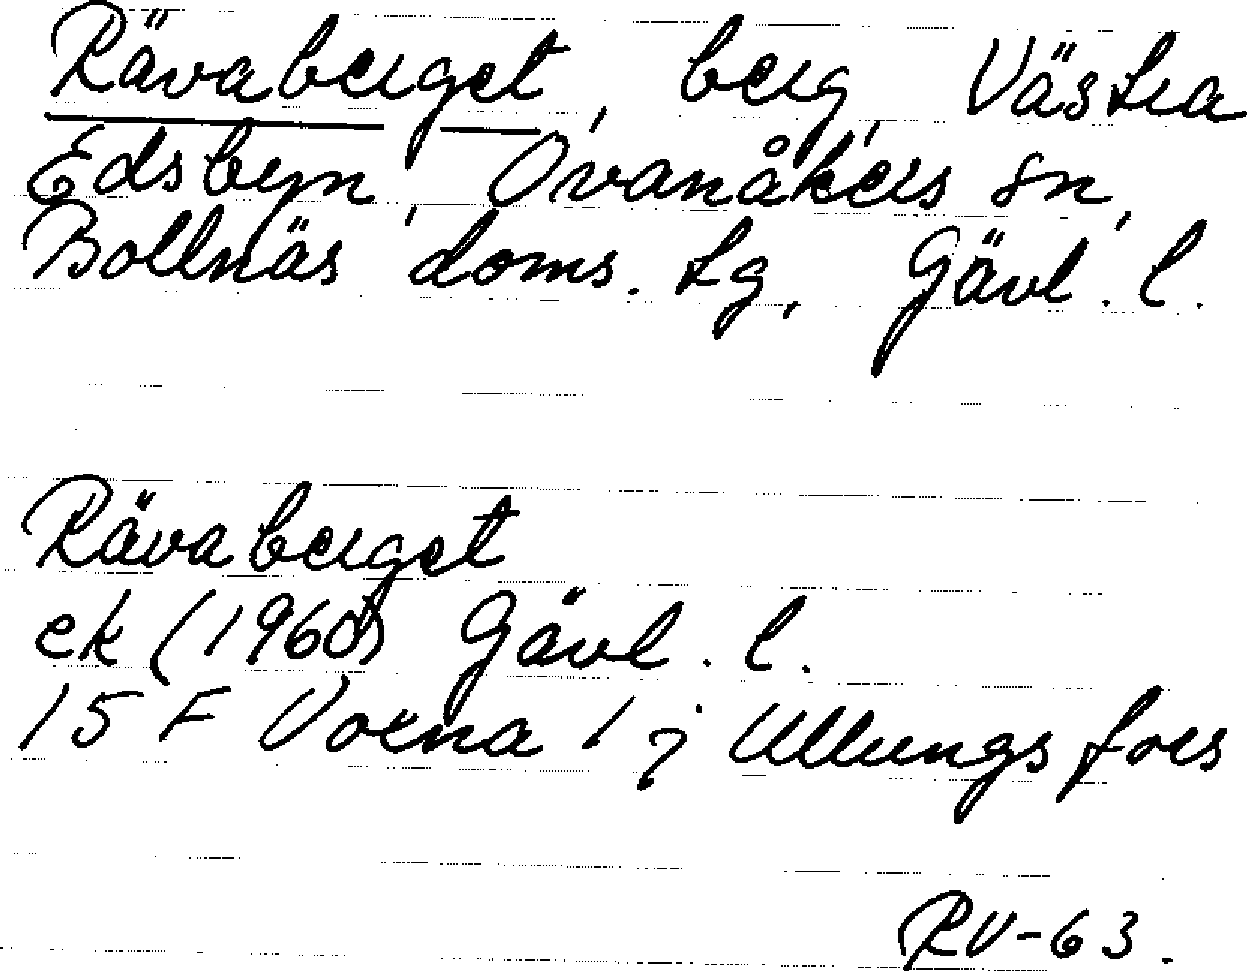 Rävaberget, berg, Västra
Edsbyn, Ovanåkers sn,
Bollnäs doms. tg, Gävl. l.
Rävaberget
ek (1960) Gävl. l.
15 F Voxna 1 j Ullungsfors
RV-63.